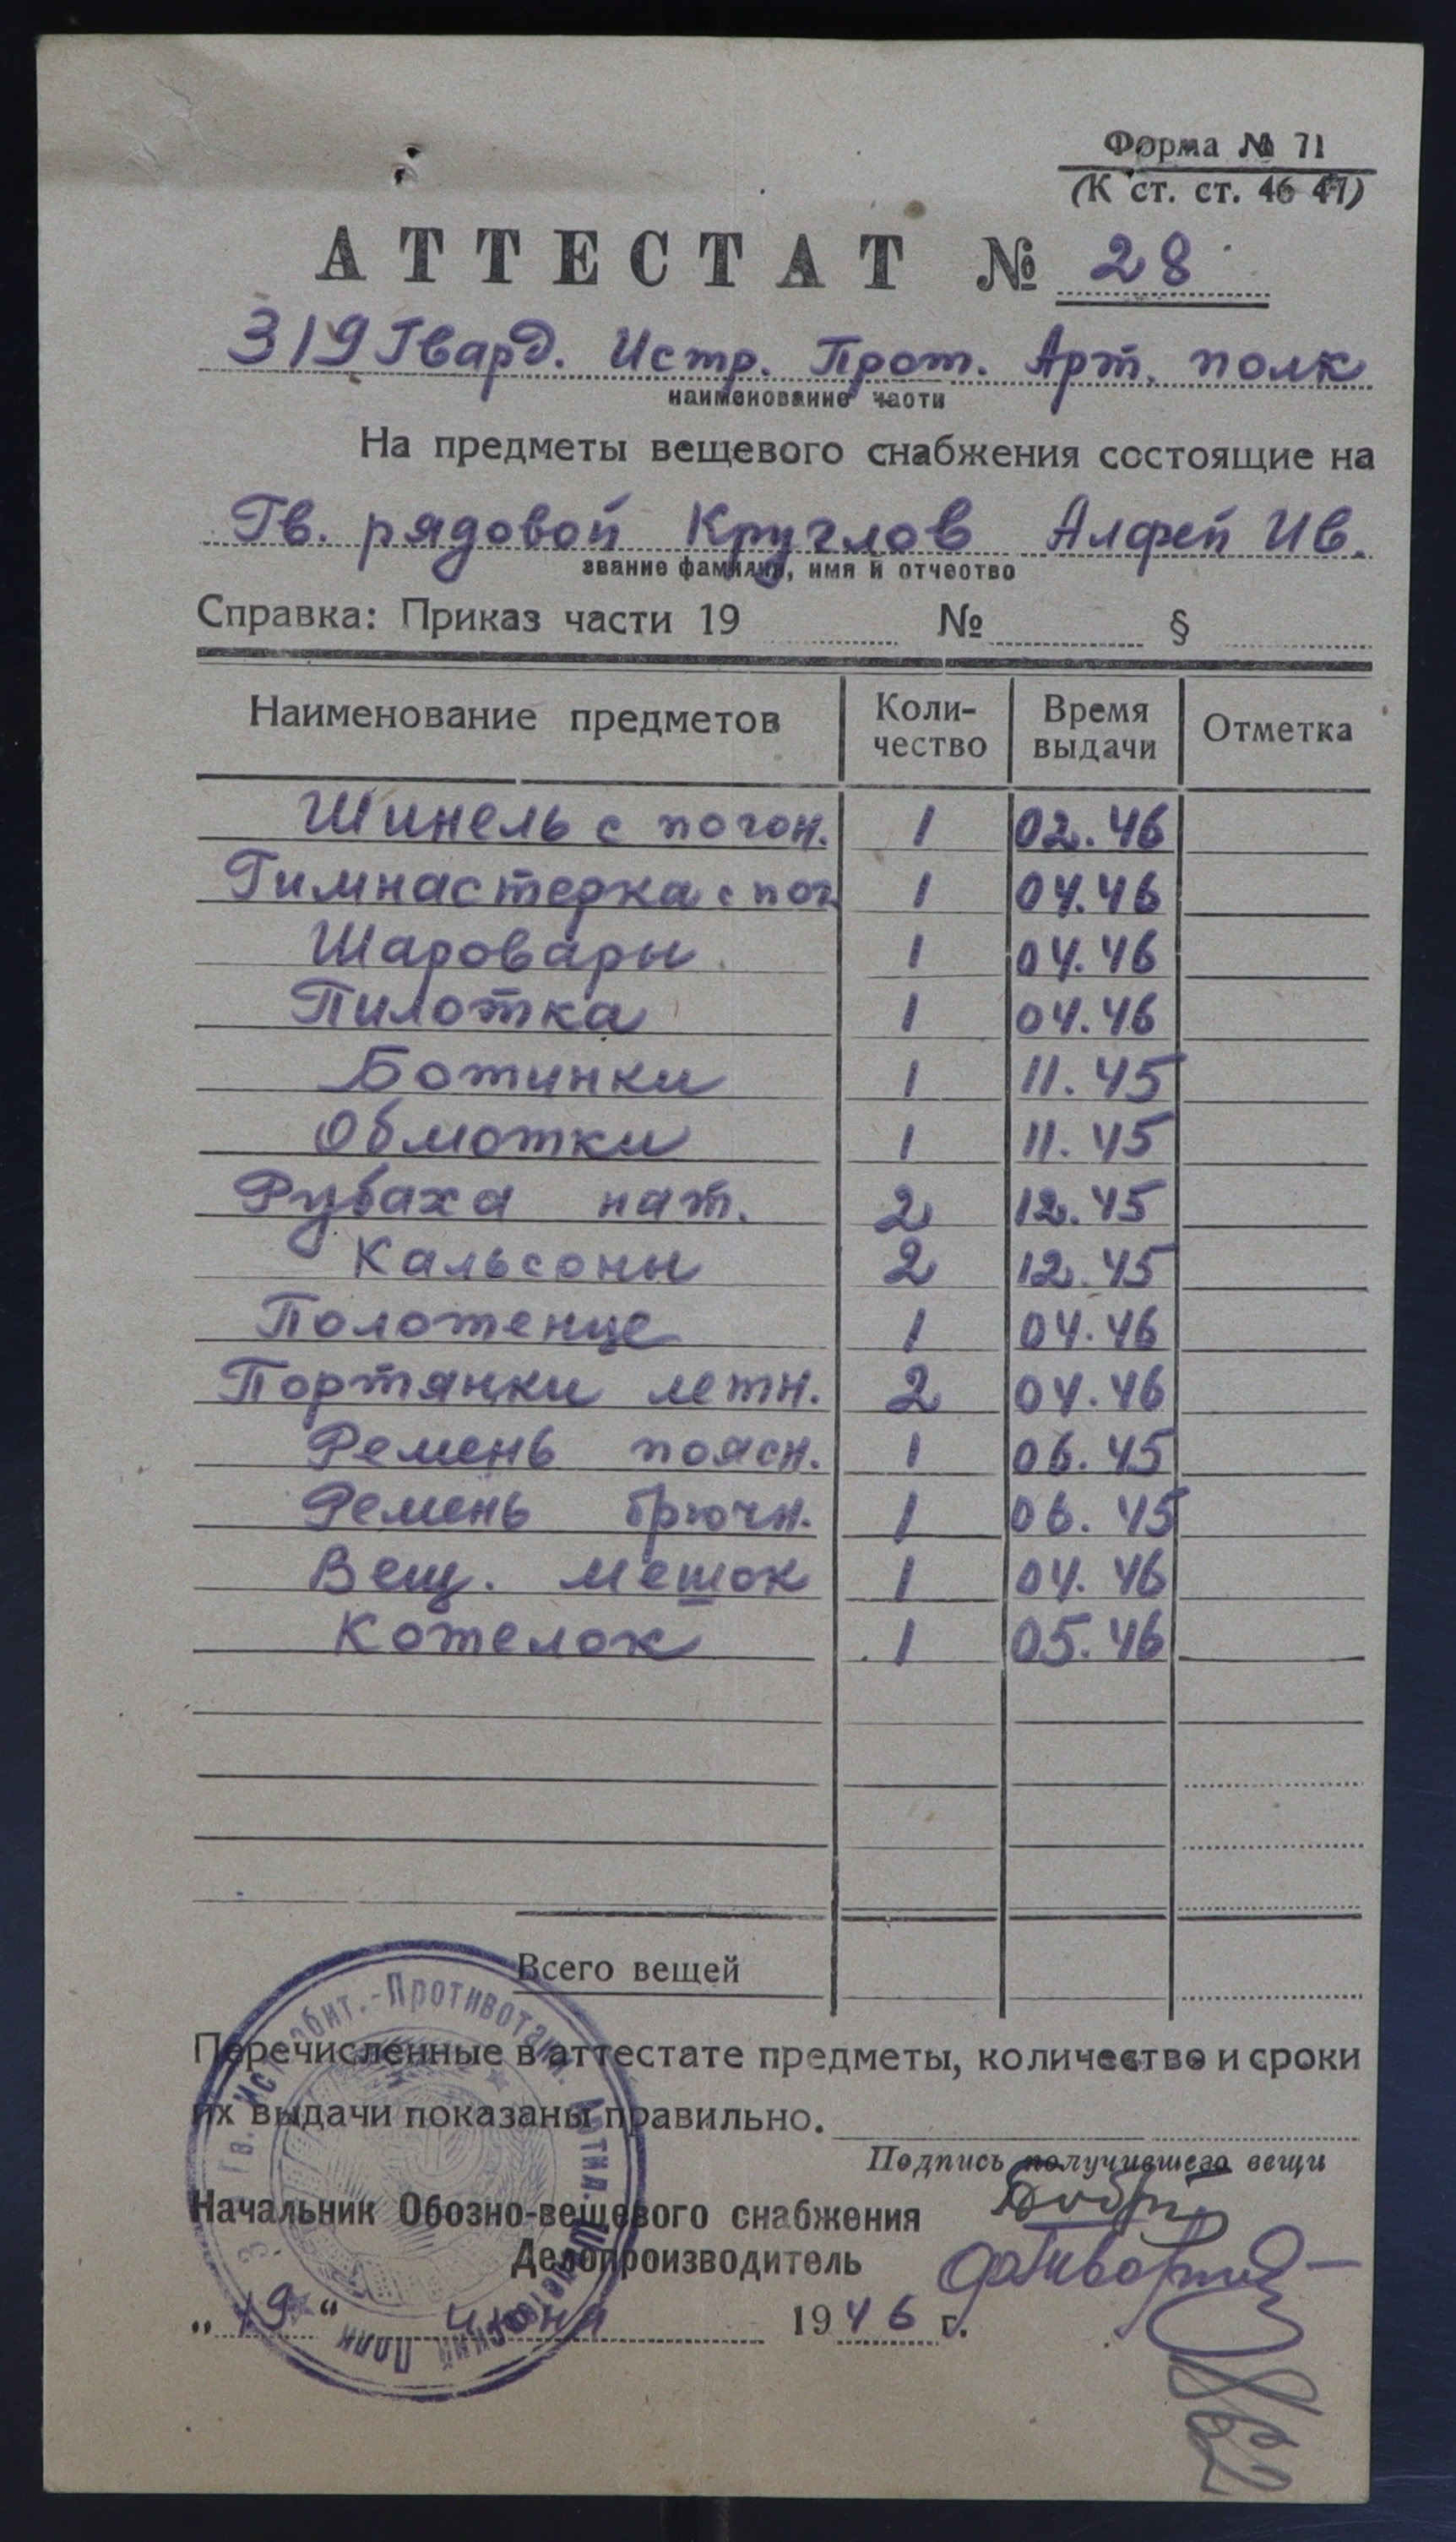 Форма № 71
(К ст. ст. 46 47)
АТТЕСТАТ № 28
319 Гвард. Истр. Прот. Арт. полк
наименование части
На предметы вещевого снабжения состоящие на
Гв. рядовой Круглов Алфей Ив.
звание фамилия, имя и отчество
Справка: Приказ части 19 № §
Наименование предметов Коли-чество Время выдачи Отметка
Шинель с погон. 1 02.46
Гимнастерка с пог 1 04.46
Шаровары 1 04.46
Пилотка 1 04.46
Ботинки 1 11.45
Обмотки 1 11.45
Рубаха нат. 2 12.45
Кальсоны 2 12.45
Полотенце 1 04.46
Портянки летн. 2 04.46
Ремень поясн. 1 06.45
Ремень брючн. 1 06.45
Вещ. мешок 1 04.46
Котелок 1 05.46
Всего вещей
Перечисленные в аттестате предметы, количество и сроки
их выдачи показаны правильно.
Подпись получившего вещи
Начальник Обозно-вещевого снабжения
Делопроизводитель
„19“ июня 1946 г.
Гв. Истребит.-Противотанк. Артил. Полк